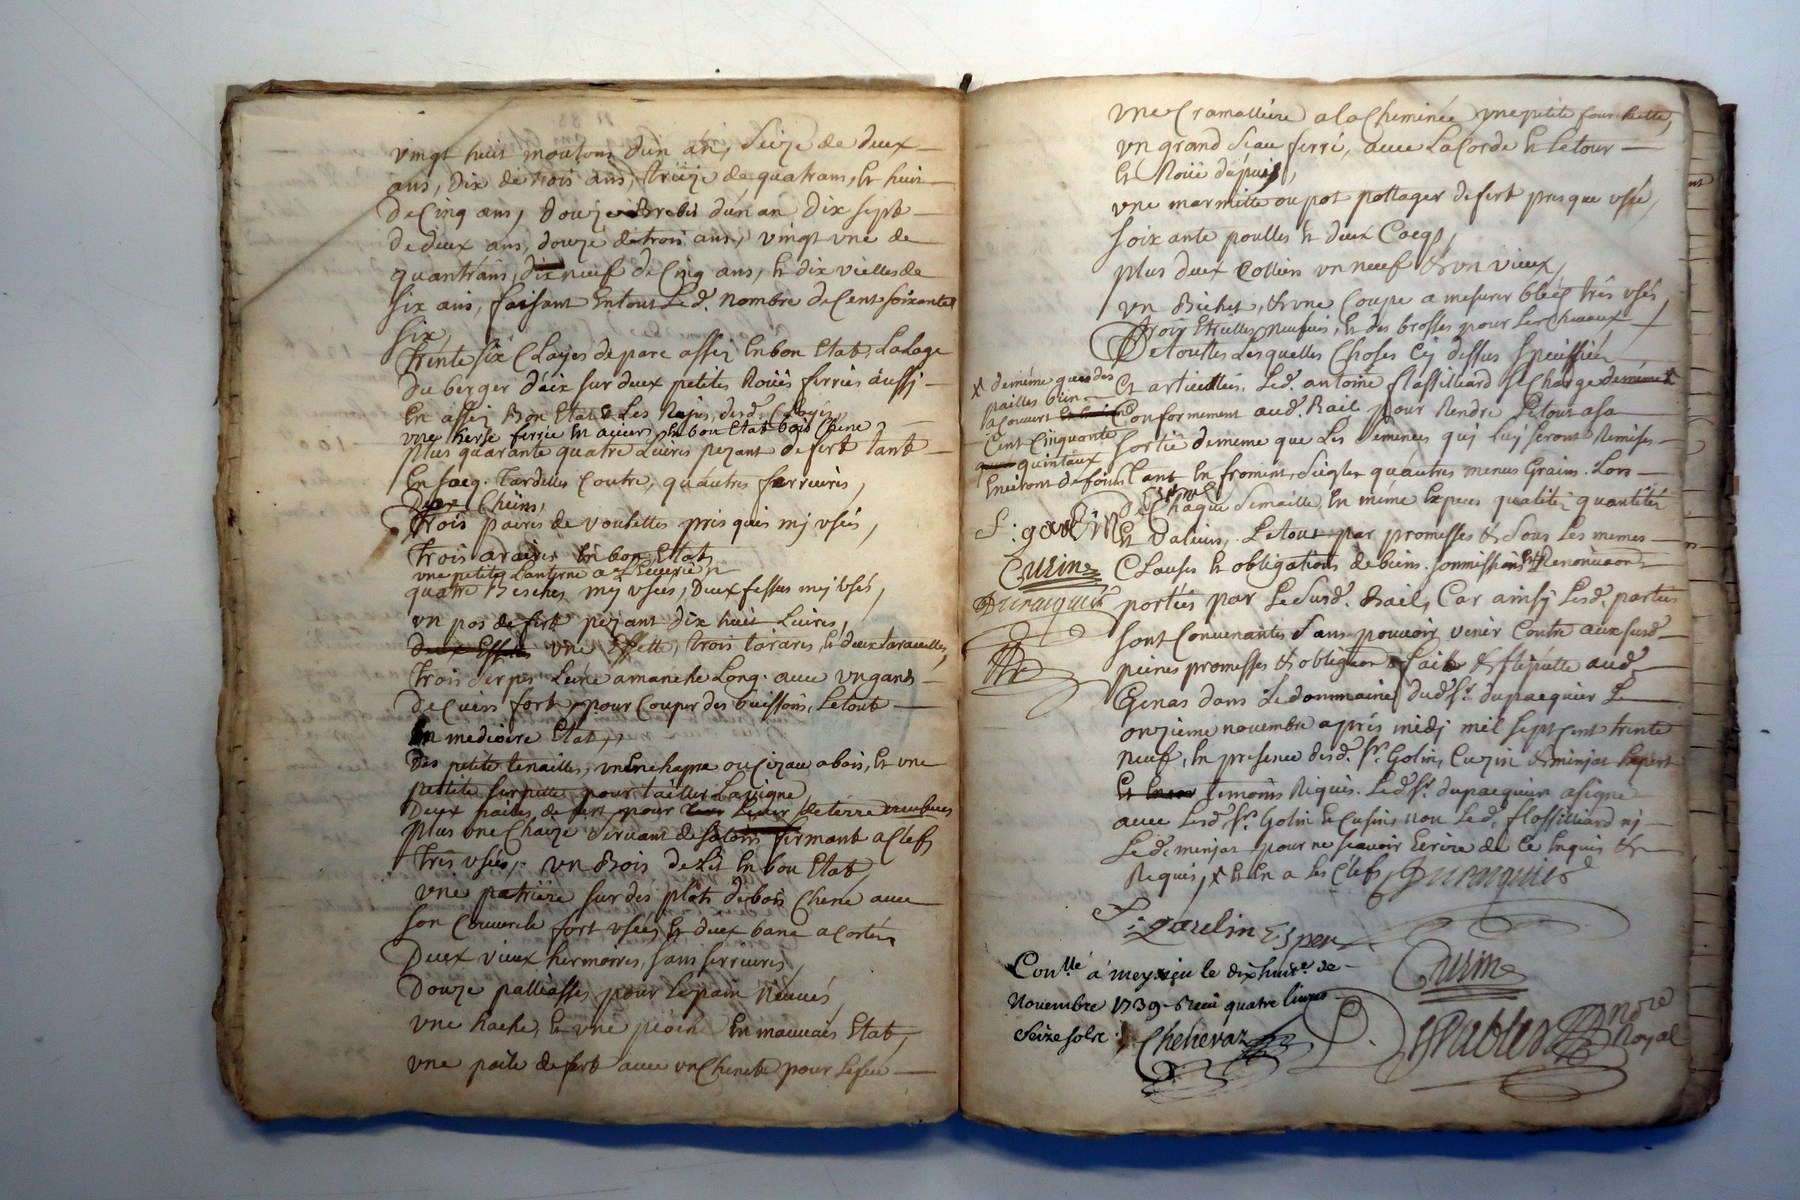 vingt huit moutons d'un an, Seize de deux
ans, dix de trois ans, treize de quatrans, et huit
de Cinq ans, douze Brebis d'un an dix sept
de deux ans, douze de trois ans, vingt une de
quantrans, dix neuf de Cinq ans, et dix vielles de
six ans, faisant en tout Led. nombre de Cent soixante
Six,
trente six Clayes de parc assez en bon Etat, La Loge
du berger d'aix sur deux petites Roües ferrées aussj
en assez Bon Etat
une herse ferrée en acier en bon Etat bois Chene
plus quarante quatre Livres pezant de fert tant
en Socq. Tardilles Contre, quautres ferrures,
Deux Chiens,
trois paires de
trois araires en bon Etat
une petite Lanterne a
quatre Besches mj usées, Deux fessus mj usés,
un pos de fert pezant dix huit Livres,
une Essette, trois tarares, et deux taravelles,
trois serpes L'une a manche Long. avec un gand
de Cuir fort pour Couper des buissons, Le tout
en mediocre Etat,
des petites tenailles, un ou Cizeau a bois, et une
petite pour tailler La vigne
Deux de fert pour de terre
plus une Chaize servant de Saloir fermant a Clefs
très usée, un Bois de Lit en bon Etat,
une patriere sur des plots de bois Chene avec
son Couvercle fort usée, et deux banc a Costés
Deux vieux hermoires, sans serrures,
Douze palliasses pour Le pain neuves,
une hache, et une pioche en mauvais Etat,
une poile de fert avec un Chenete pour Le feu
une Cramalliere a la Cheminée une petite fourchette,
un grand seau ferré, avec La Corde et Le tour
et Roüe du puis,
une marmitte ou pot pottager de fert presque usée,
soixante poulles et deux Cocqs,
plus deux Colliers un neuf et un vieux,
un Bichet, et une Coupe a mesurer bled très usés,
trois Etrilles neufves, et des brosses pour Les Chevaux
De toutes Lesquelles Choses Cy dessus speciffiées
et articullés. Led. antoine flassilliard se Charge de meme
Conformement aud. Bail pour Rendre Le tout a sa
sortie de meme que Les semences quj luj seront Remises
tant en froment, Seigle, quautres menus Grains. Lors
de Chaque semaille, en même Especes qualité, quantités
et valeurs, Le tout par promesses et sous Les memes
Clauses et obligations de biens. sommissions et Renonciaons
portées par Le susd. Bail, Car ainsj Lesd. parties
sont Convenantes sans pouvoir venir Contre aux susd.
peines promesses et obligaon fait et stipullé aud.
Genas dans Le dommaine dud. sr. dupacquier Le
onzieme novembre après midj mil sept cent trente
neuf, en presence desd. srs. Golin, Cuzin et minjat
temoins Requis. Led. sr. dupacquier a signé
avec Lesd. srs. Golin et Cusins non Led. flassilliard nj
Led. minjat pour ne sçavoir Ecrire de Ce Enquis et
Requis, x et en a les Clefs
x de même que des
pailles bien
a Couvert
Cent Cinquante
quintaux
environ de foin
S: gaulin
Cuzin
Dupacquier
Dupacquier
S: gaulin
Cuzin
Conllé a meyzieu le dix huite. de
Novembre 1739 Receu quatre livres
seize sols.
Chehevaz
nore
Royal